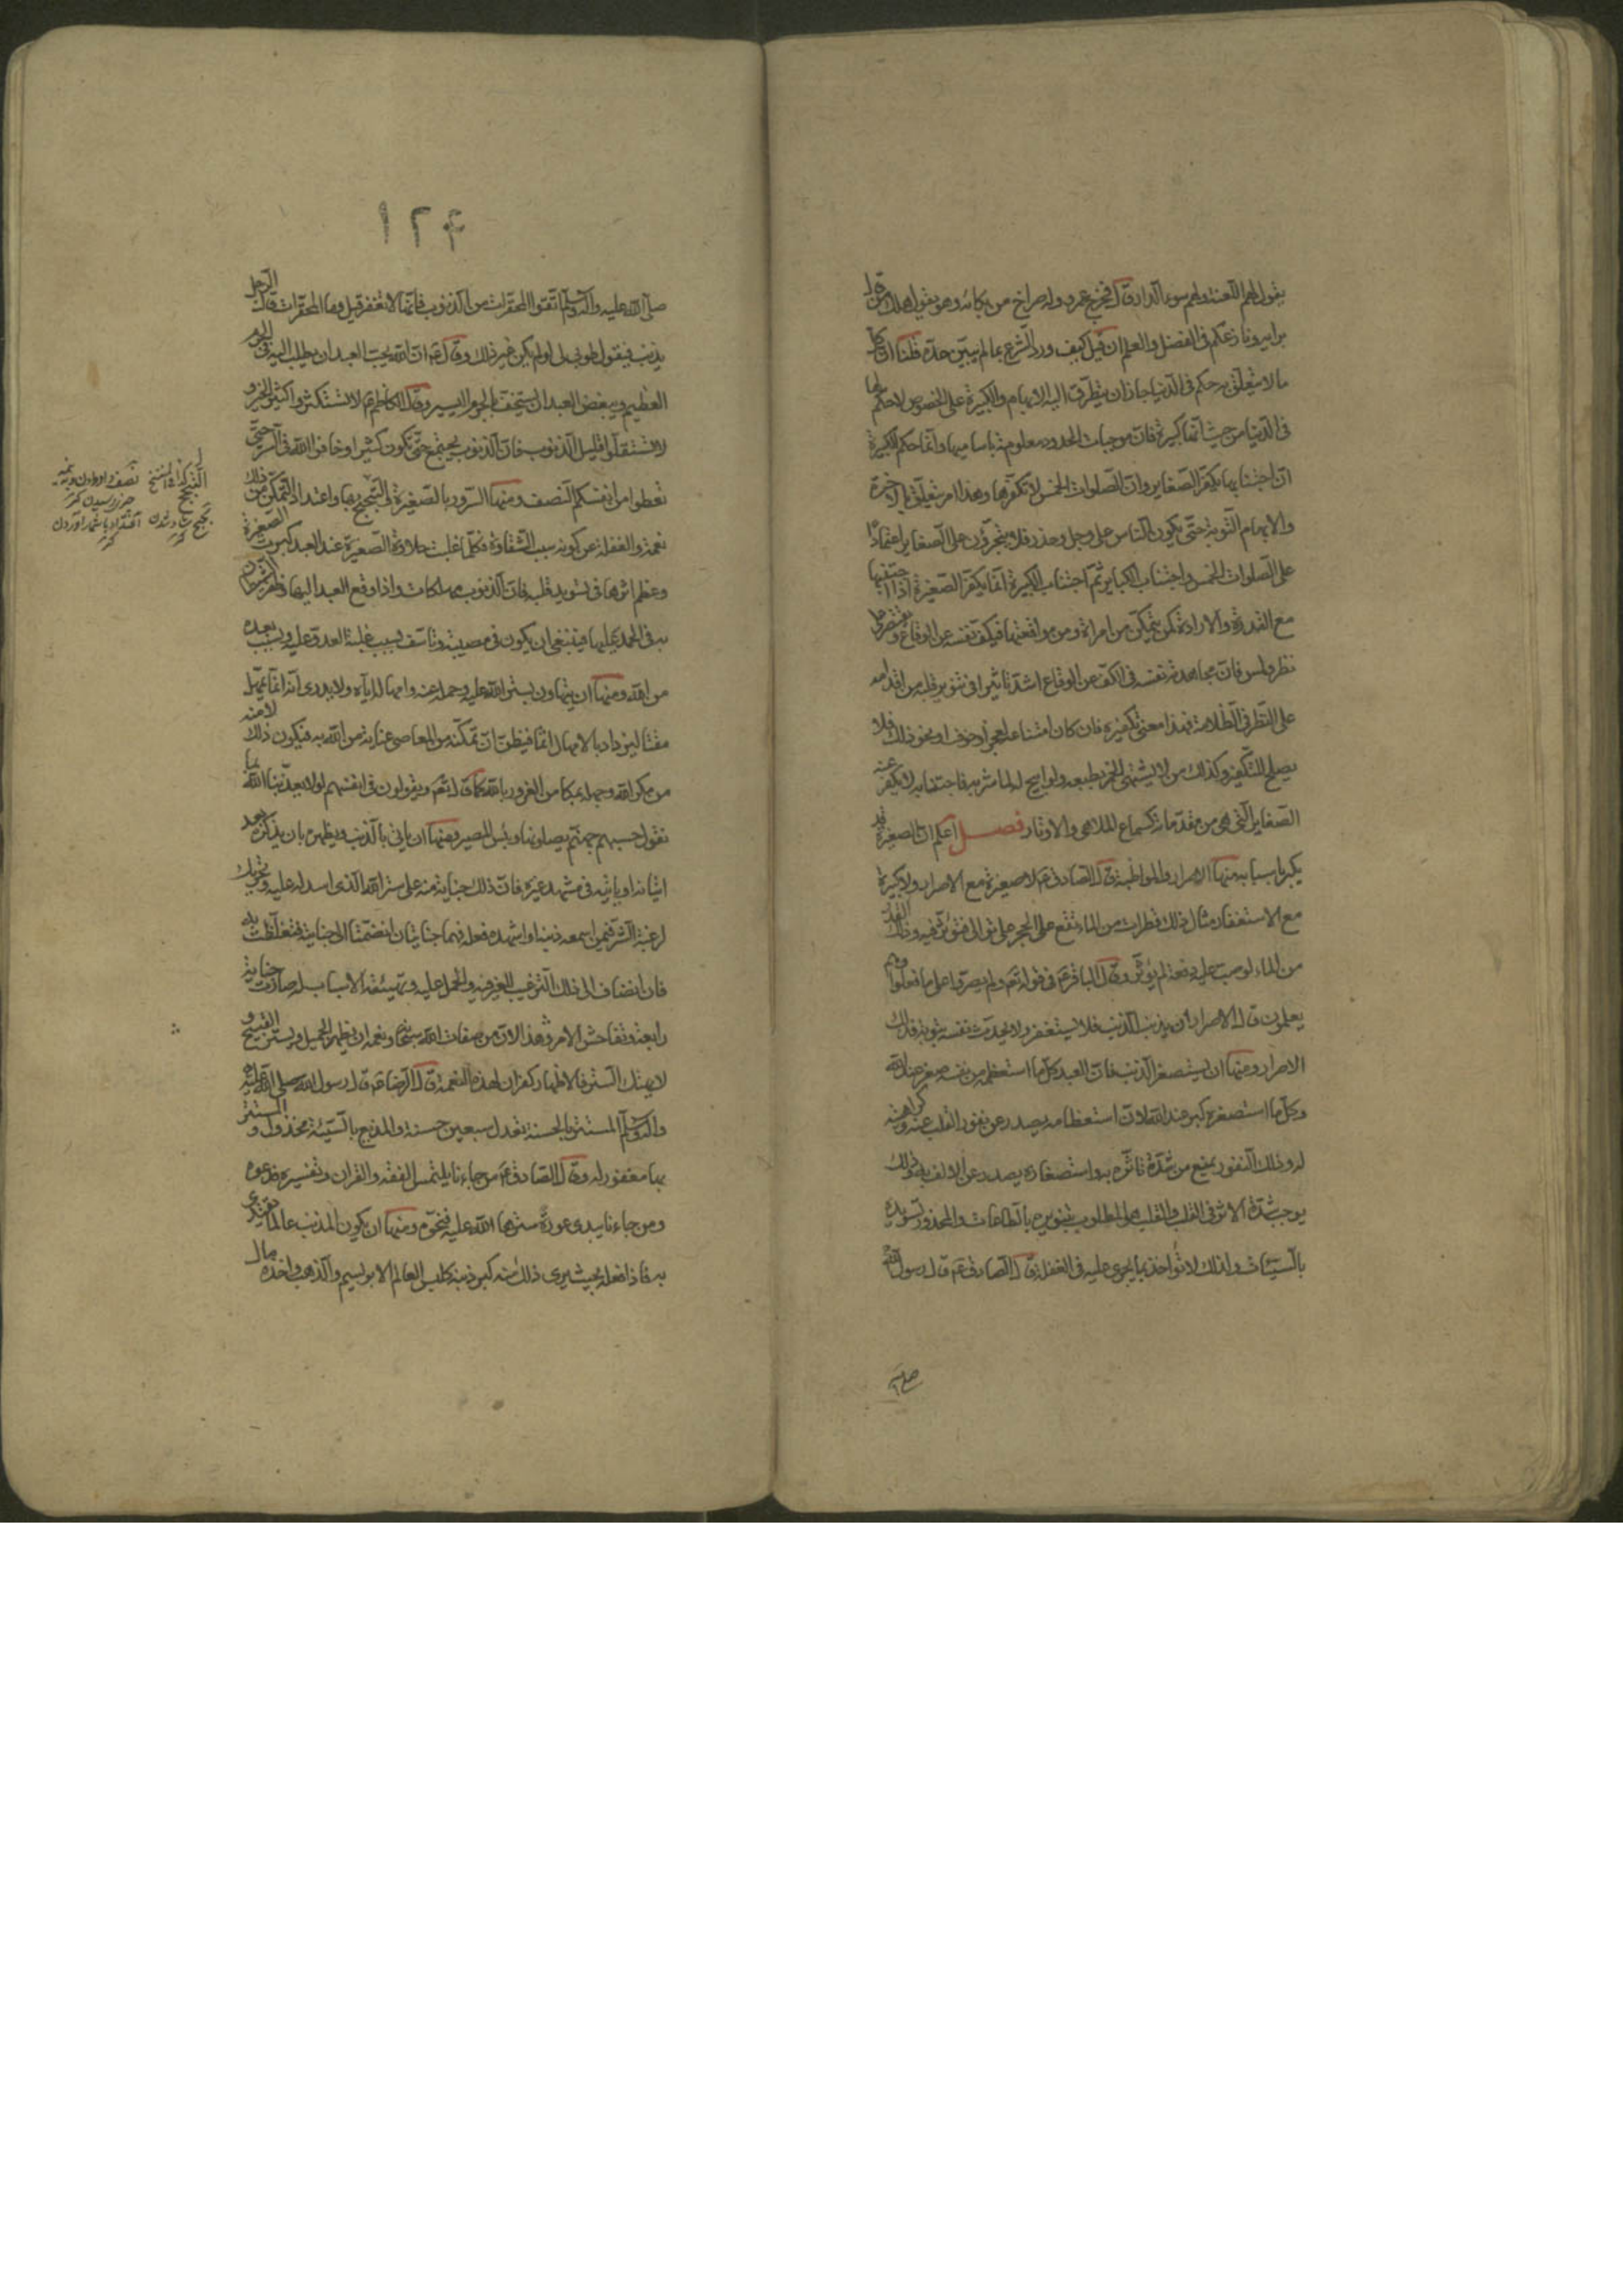 يقول لهم اللعنة ولهم سوء الدار قال فخرج عمرو وله صراخ من بكائه وهو يقول هلك من قال
برأيه ونازعكم في الفضل والعلم ان قيل كيف ورد الشرع بما لم يبين حده قلنا ان كل
ما لا يتعلق به حكم في الدنيا جاز ان يتطرق اليه الابهام والكبيرة على الخصوص لا حكم لها
في الدنيا من حيث انها كبيرة فان موجبات الحدود معلومة باساميها وانما حكم الكبيرة
ان اجتنابها يكفر الصغاير وان الصلوات الخمس لا تكفرها وهذا امر يتعلق بالاخرة
والابهام اليق به حتى يكون الناس على وجل وحذر فلا يتجرؤن على الصغاير اعتمادا
على الصلوات الخمس واجتناب الكبائر ثم اجتناب الكبيرة انما يكفر الصغيرة اذا اجتنبها
مع القدرة والارادة كمن يتمكن من امراة ومن مواقعتها فيكف نفسه عن الوقاع ويقتصر على
نظر ولمس فان مجاهدته نفسه في الكف عن الوقاع اشد تاثيرا في تنوير قلبه من اقدامه
على النظر في اظلامه فهذا معنى تكفيره فان كان امتناعه لعجز او خوف او نحو ذلك فلا
يصلح للتكفير وكذلك من لا يشتهي الخمر بطبعه ولو ابيح له لما شربه فاجتنابه لا يكفر عنه
الصغاير التي هي من مقدماته كسماع الملاهي والاوتار فصل اعلم ان الصغيرة قد
يكبر باسباب منها الاصرار والمواظبة قال الصادق ع لا صغيرة مع الاصرار ولا كبيرة
مع الاستغفار مثال ذلك قطرات من الماء تقع على الحجر على توال فتؤثر فيه وذلك القدر
من الماء لو صب عليه دفعة لم يؤثر وقال الباقر ع في قوله تع ولم يصروا على ما فعلوا وهم
يعلمون قال الاصرار ان يذنب الذنب فلا يستغفر ولا يحدث نفسه بتوبة فذلك
الاصرار ومنها ان يستصغر الذنب فان العبد كلما استعظمه من نفسه صغر عند الله
وكلما استصغره كبر عند الله لان استعظامه يصدر عن نفور القلب عنه وكراهته
له وذلك النفور يمنع من شدة تاثره به واستصغاره يصدر عن الالف به وذلك
يوجب شدة الاثر في القلب والقلب هو المطلوب تنويره بالطاعات والمحذور تسويده
بالسيئات ولذلك لا تؤاخذ بما يجري عليه في الغفلة قال الصادق ع قال رسول الله
صلى
١٢٤
صلى الله عليه واله وسلم اتقوا المحقرات من الذنوب فانها لا تغفر قيل وما المحقرات قال الرجل
يذنب فيقول طوبى لي لو لم يكن غير ذلك وقال ع ان الله يحب العبد ان يطلب اليه في الجرم
العظيم ويبغض العبد ان يستخف بالجرم اليسير وقال الكاظم ع لا تستكثروا كثير الخير و
لا تستقلوا قليل الذنوب فان الذنوب يجتمع حتى تكون كثيرا وخافوا الله في السر حتى
تعطوا من انفسكم النصف ومنها السرور بالصغيرة والتبجح بها واعتداد التمكن من ذلك
نعمة والغفلة عن كونه سبب الشقاوة فكلما غلبت حلاوة الصغيرة عند العبد كبرت الصغيرة
وعظم اثرها في تسويد قلبه فان الذنوب مهلكات واذا وقع العبد اليها وظفر الشيطان
به في الحمل عليها فينبغي ان يكون في مصيبة وتاسف بسبب غلبة العدو عليه وبسبب بعده
من الله ومنها ان يتهاون بستر الله عليه وحمله عنه وامهاله اياه ولا يدري انه انما يمهل
مقتا ليزداد بالامهال اثما فيظن ان تمكنه من المعاصي عناية من الله به فيكون ذلك لامنه
من مكر الله وجهله بمكامن الغرور بالله كما قال تع ويقولون في انفسهم لولا يعذبنا الله بما
نقول حسبهم جهنم يصلونها وبئس المصير ومنها ان ياتي بالذنب ويظهره بان يذكره بعد
اتيانه او ياتيه في مشهد غيره فان ذلك جناية منه على ستر الله الذي اسدله عليه وتحريك
لرغبة الشر فيمن اسمعه ذنبه او اشهده فعله فهما جنايتان انضمتا الى جنايته فتغلظت به
فان انضاف الى ذلك الترغيب للغير فيه والحمل عليه وتهيئة الاسباب له صارت جناية
رابعة وتفاحش الامر وهذا لان من صفات الله سبحانه ونعمه ان يظهر الجميل ويستر القبيح و
لا يهتك الستر فالاظهار كفران لهذه النعمة قال الرضا ع قال رسول الله صلى الله عليه
واله وسلم المستتر بالحسنة تعدل سبعين حسنة والمذيع بالسيئة مخذول والمستتر
بها مغفور له وقال الصادق ع من جاءنا يلتمس الفقه والقران وتفسيره فدعوه
ومن جاءنا يبدي عورة سترها الله عليه فنحوه ومنها ان يكون المذنب عالما يقتدى
به فاذا فعله بحيث يرى ذلك منه كبر ذنبه كلبس العالم الابريسم والذهب واخذه مال